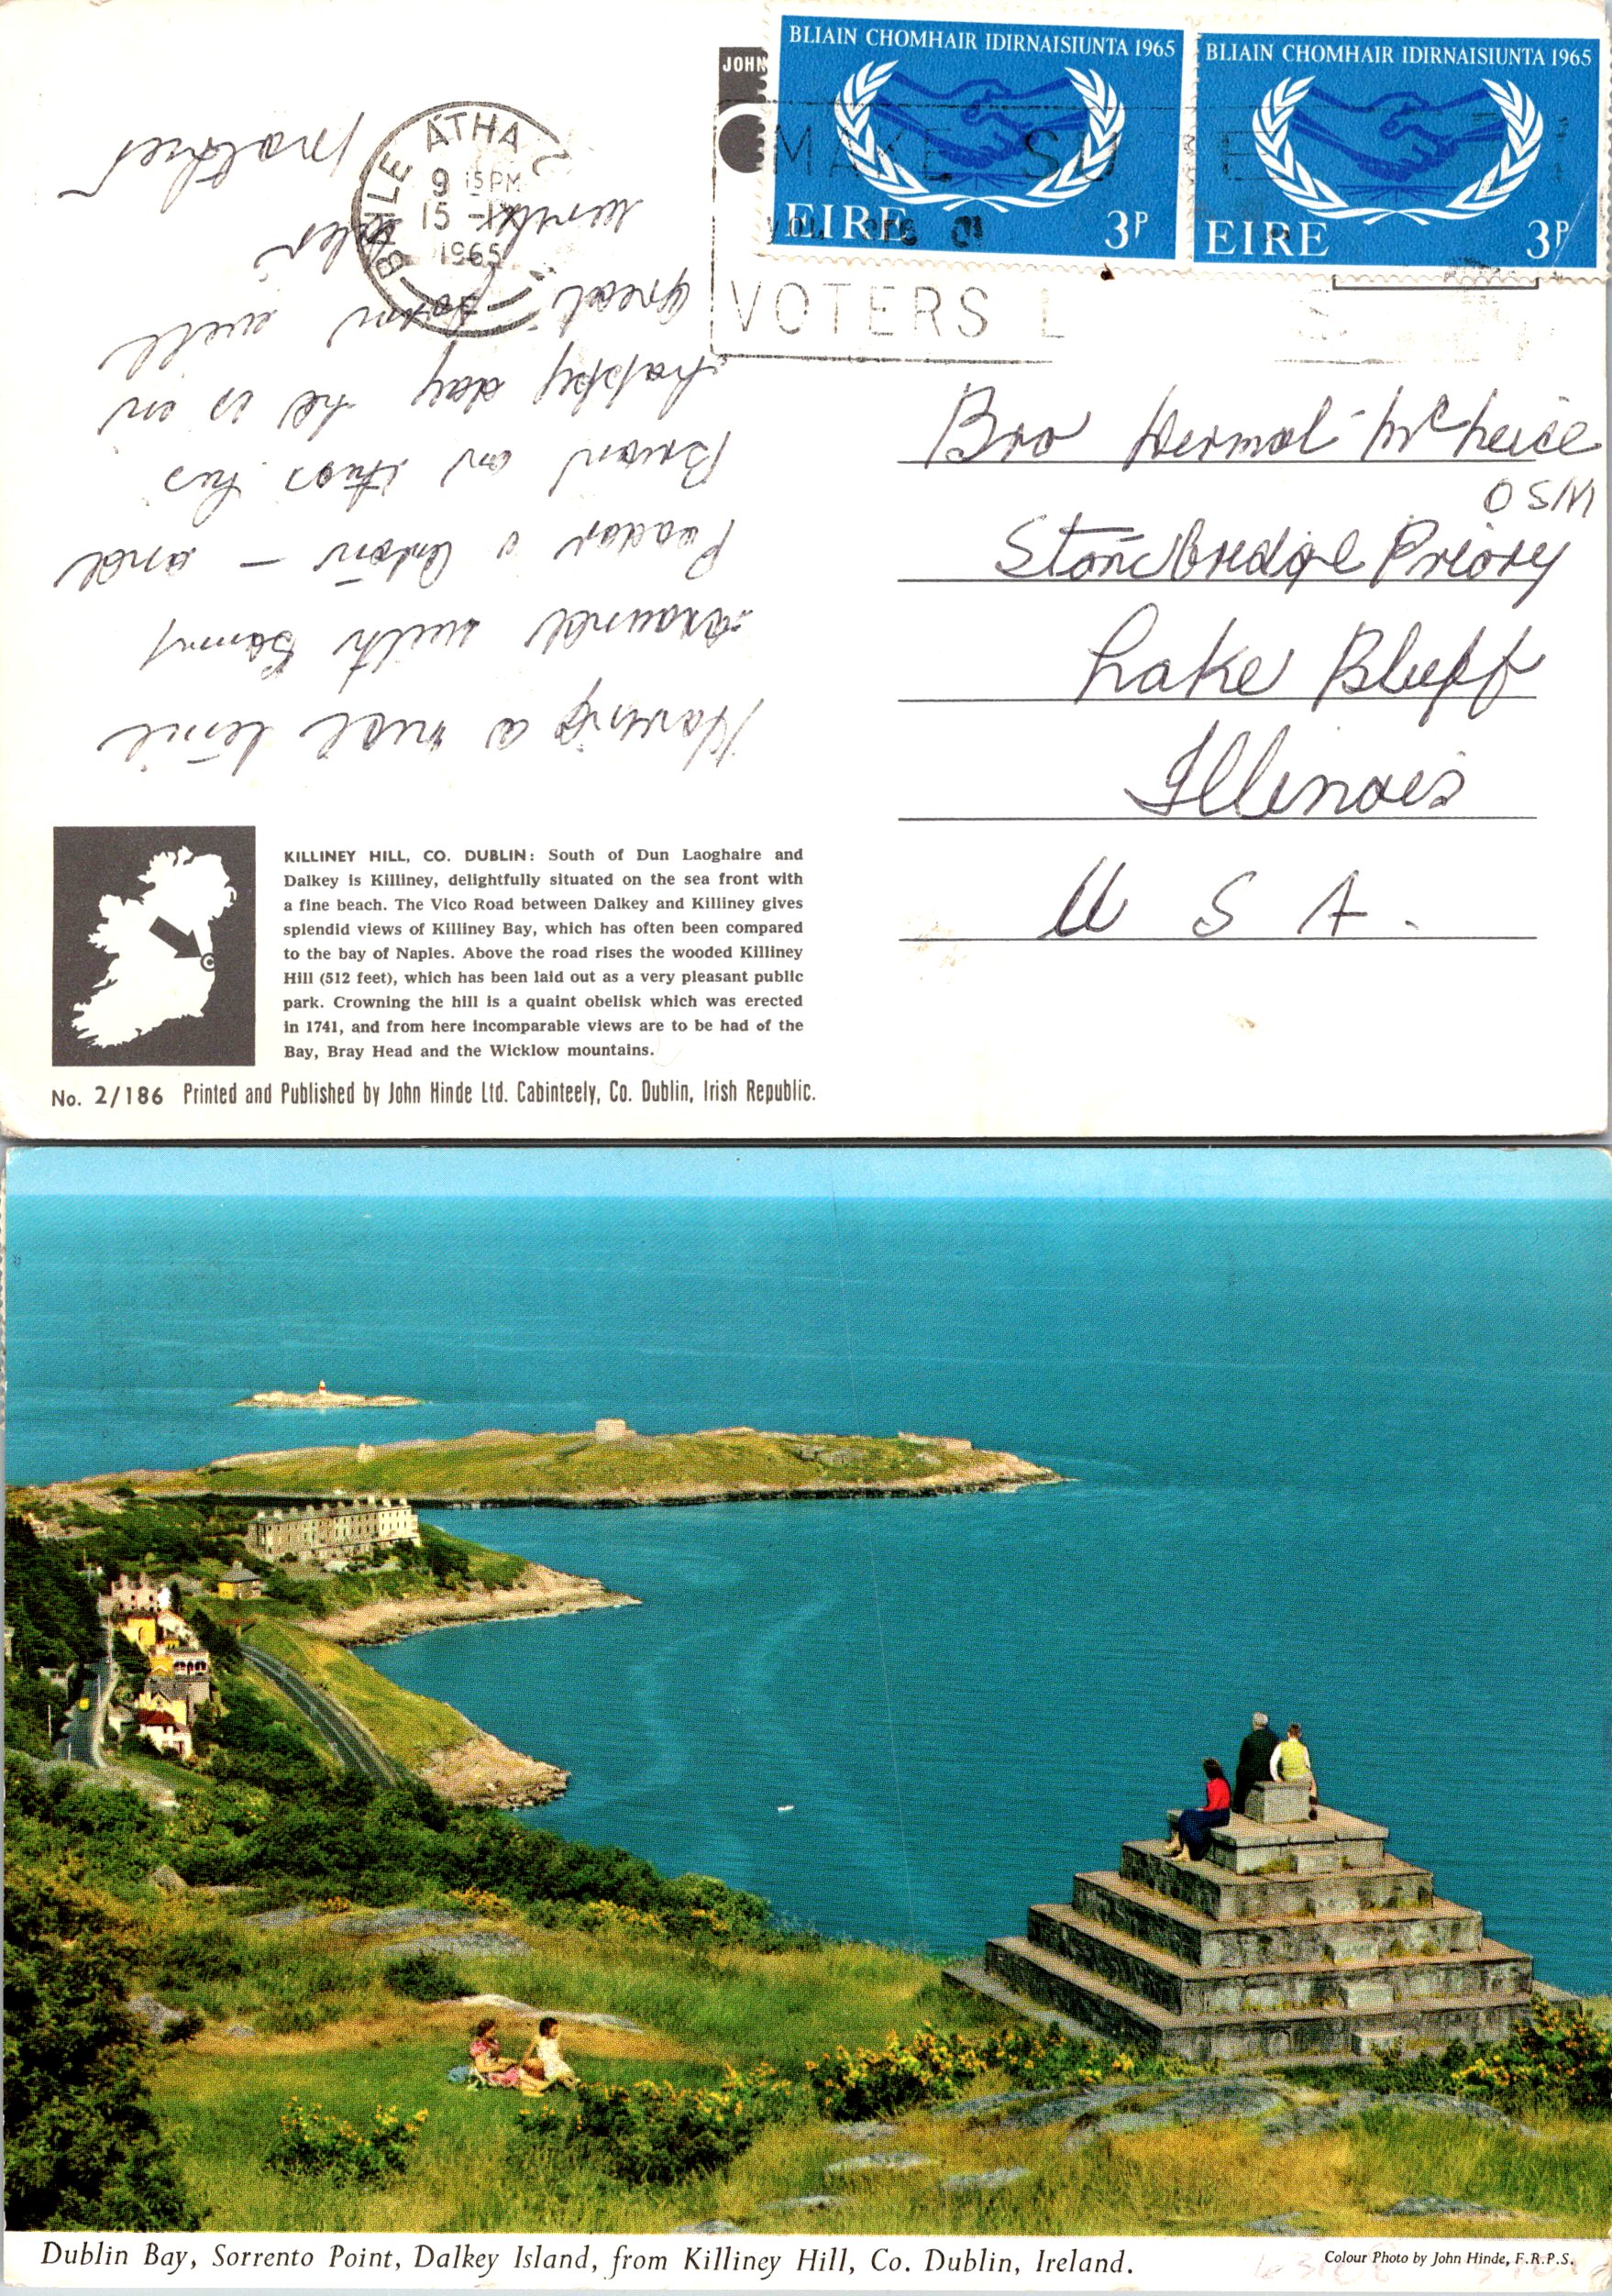 JOHN
BLIAIN CHOMHAIR IDIRNAISIUNTA 1965
EIRE 3P
BLIAIN CHOMHAIR IDIRNAISIUNTA 1965
EIRE 3P
BAILE ÁTHA
9 15PM
15 -IX
1965
MAKE SU E
VOTERS L
Having a nice time
around with Sammy
Peadar &  - and
Brian on this his
happy day he is in
great form will
write later
Mother
Bro Dermot McNeice
OSM
Stonebridge Priory
Lake Bluff
Illinois
U S A.
KILLINEY HILL, CO. DUBLIN: South of Dun Laoghaire and
Dalkey is Killiney, delightfully situated on the sea front with
a fine beach. The Vico Road between Dalkey and Killiney gives
splendid views of Killiney Bay, which has often been compared
to the bay of Naples. Above the road rises the wooded Killiney
Hill (512 feet), which has been laid out as a very pleasant public
park. Crowning the hill is a quaint obelisk which was erected
in 1741, and from here incomparable views are to be had of the
Bay, Bray Head and the Wicklow mountains.
No. 2/186 Printed and Published by John Hinde Ltd. Cabinteely, Co. Dublin, Irish Republic.
Dublin Bay, Sorrento Point, Dalkey Island, from Killiney Hill, Co. Dublin, Ireland.
Colour Photo by John Hinde, F.R.P.S.